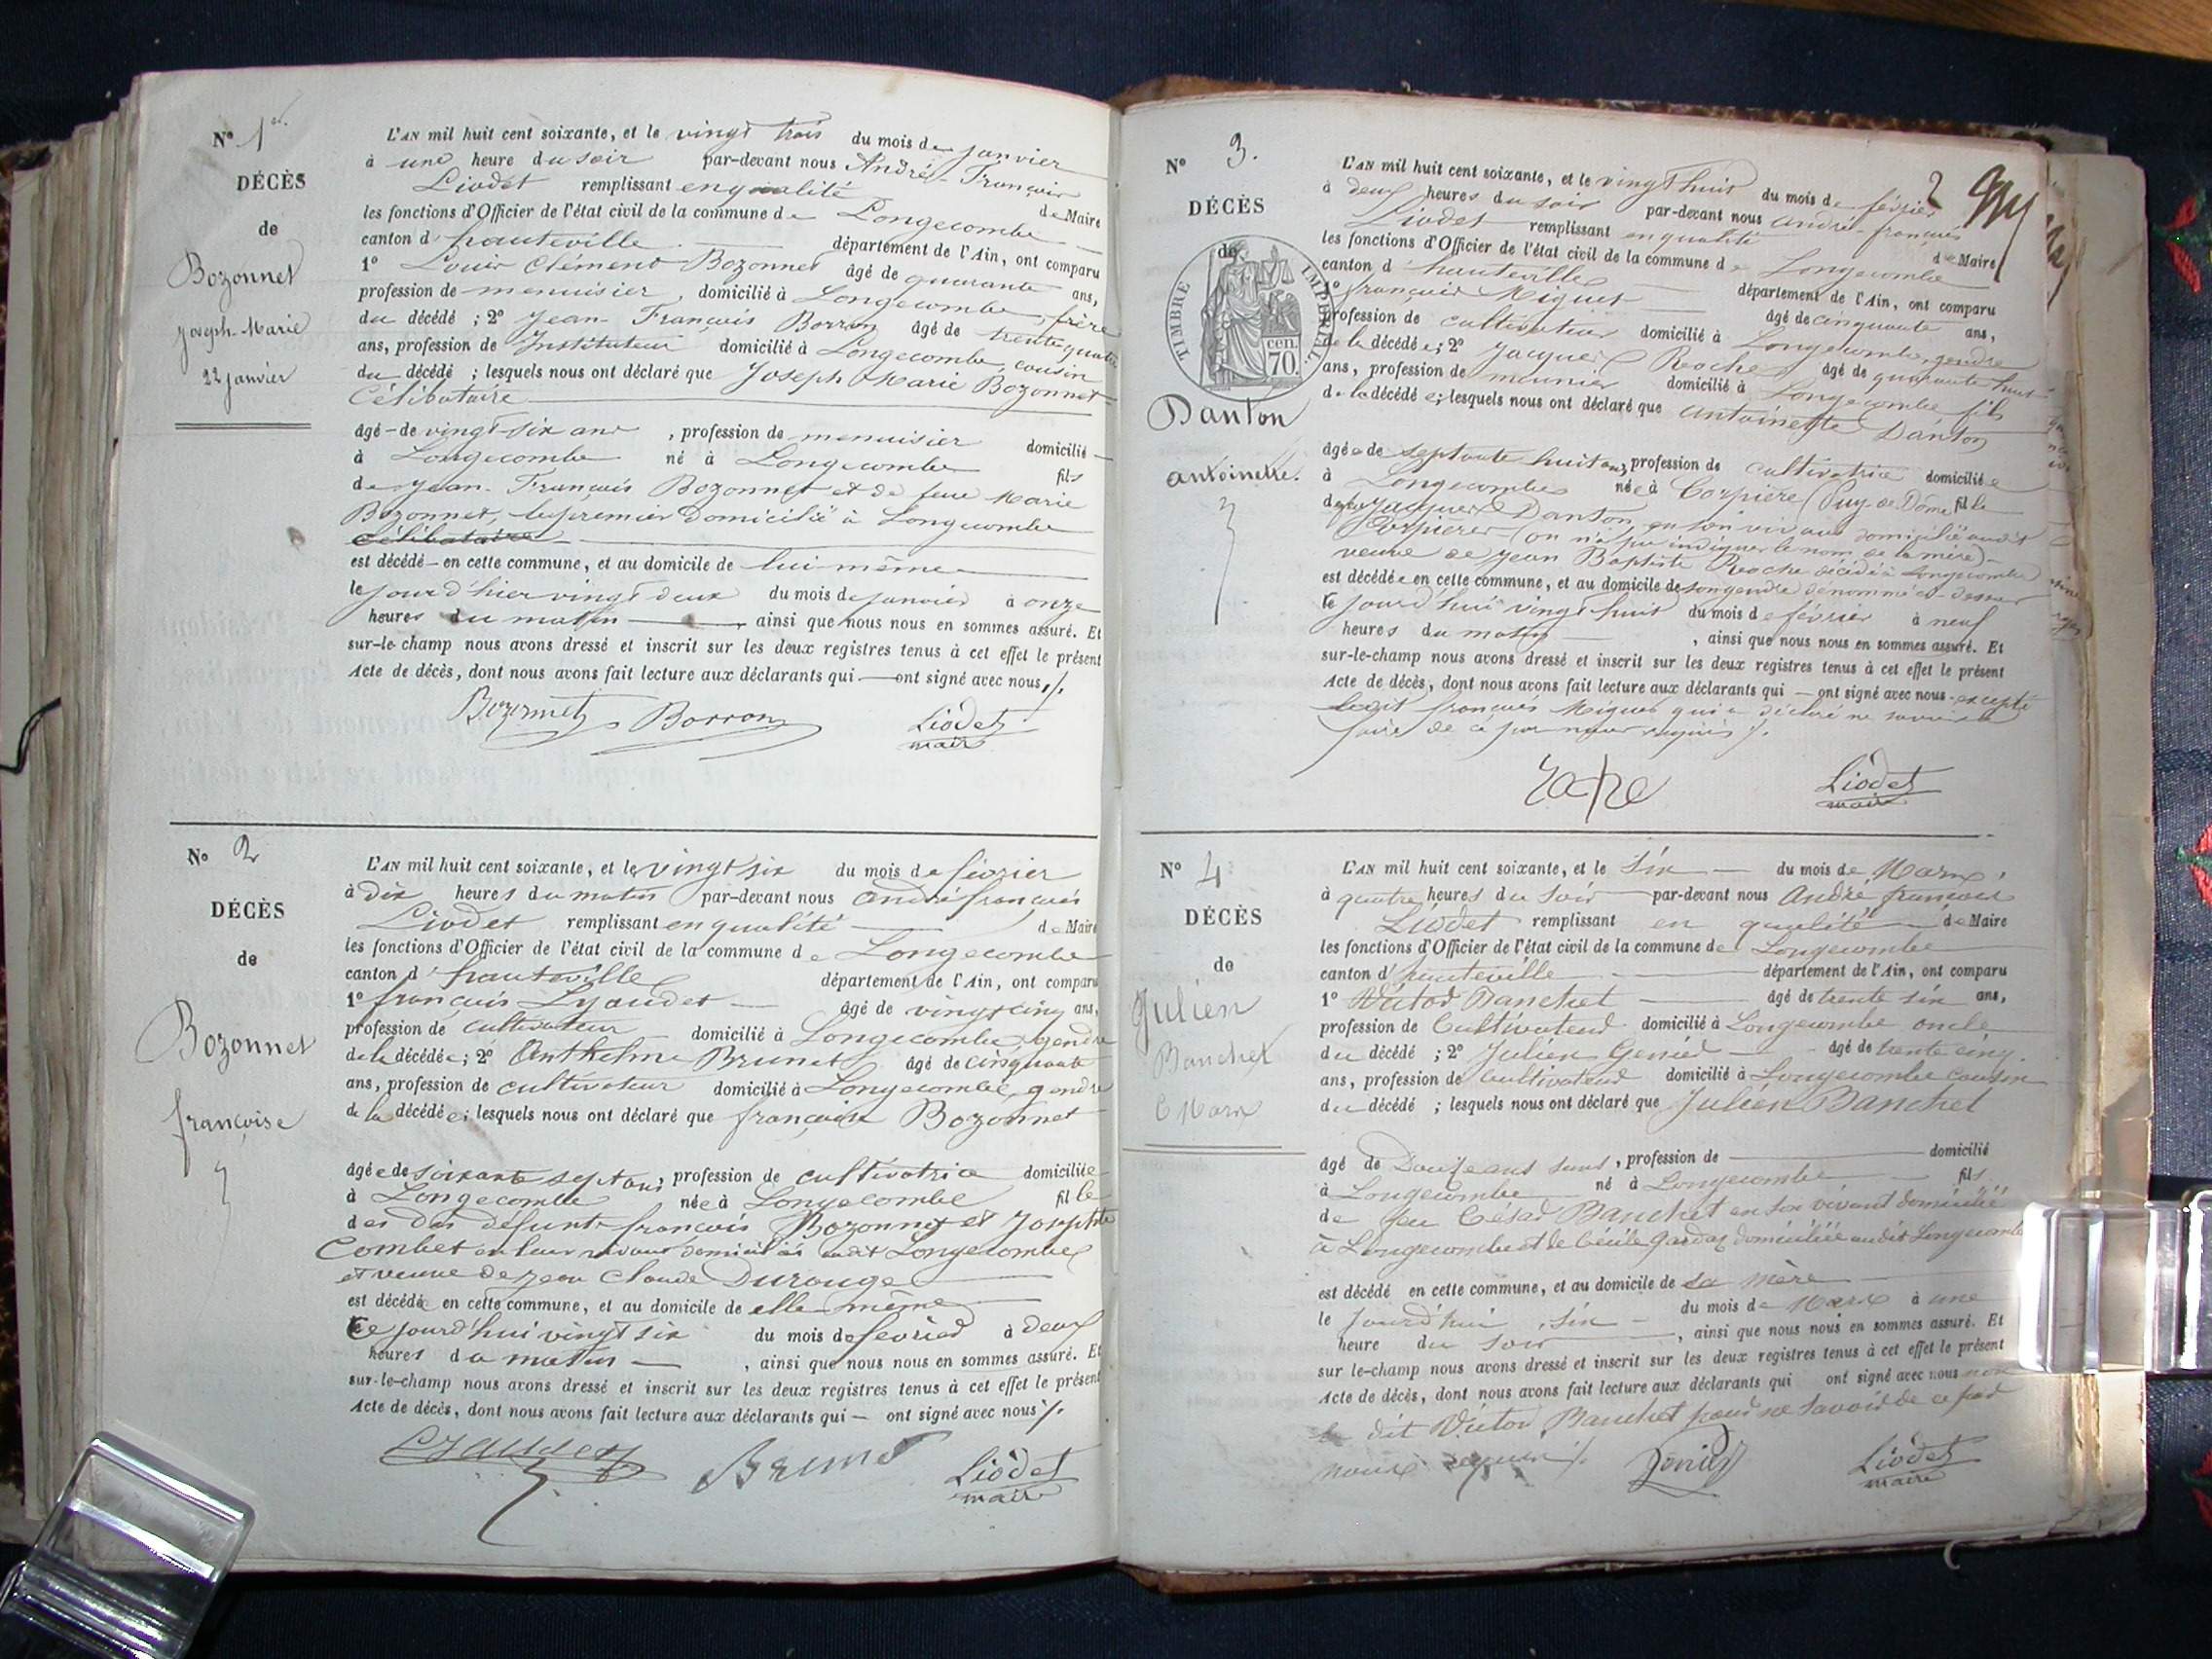 N° 1er
DÉCÈS
de
Bozonnet
Joseph-Marie
22 janvier
L'AN mil huit cent soixante, et le vingt trois du mois de janvier
à une heure du soir par-devant nous André-François
Liodet remplissant en qualité de Maire
les fonctions d'Officier de l'état civil de la commune de Longecombe
canton d'hauteville département de l'Ain, ont comparu
1° Louis Clément Bozonnet âgé de quarante ans,
profession de menuisier, domicilié à Longecombe, frère
du décédé ; 2° Jean-François Borron âgé de trente quatre
ans, profession de Instituteur domicilié à Longecombe, cousin
du décédé ; lesquels nous ont déclaré que Joseph Marie Bozonnet
Célibataire
âgé de vingt-six ans, profession de menuisier domicilié
à Longecombe né à Longecombe fils
de Jean-François Bozonnet et de feue Marie
Bozonnet, le premier domicilié à Longecombe
célibataire
est décédé en cette commune, et au domicile de lui-même
le jour d'hier vingt deux du mois de janvier à onze
heures du matin ainsi que nous nous en sommes assuré. Et
sur-le-champ nous avons dressé et inscrit sur les deux registres tenus à cet effet le présent
Acte de décès, dont nous avons fait lecture aux déclarants qui ont signé avec nous ./.
Bozonnet Borron Liodet
maire
N° 2
DÉCÈS
de
Bozonnet
françoise
L'AN mil huit cent soixante, et le vingt six du mois de février
à dix heures du matin par-devant nous andré françois
Liodet remplissant en qualité de Maire
les fonctions d'Officier de l'état civil de la commune de Longecombe
canton d'hauteville département de l'Ain, ont comparu
1° françois Lyaudet âgé de vingt cinq ans,
profession de cultivateur domicilié à Longecombe, gendre
de la décédée ; 2° Anthelme Brunet âgé de cinquante
ans, profession de cultivateur domicilié à Longecombe, gendre
de la décédée ; lesquels nous ont déclaré que françoise Bozonnet
âgée de soixante sept ans, profession de cultivatrice domiciliée
à Longecombe née à Longecombe fille
des défunts françois Bozonnet et Josephte
Combet en leur vivant domiciliés audit Longecombe
et veuve de jean Claude Durouge
est décédé en cette commune, et au domicile de elle-même
le jourd'hui vingt six du mois de fevrier à deux
heures du matin, ainsi que nous nous en sommes assuré. Et
sur-le-champ nous avons dressé et inscrit sur les deux registres tenus à cet effet le présent
Acte de décès, dont nous avons fait lecture aux déclarants qui — ont signé avec nous ./.
Lyaudet Brunet Liodet
maire
N° 3.
DÉCÈS
de
TIMBRE IMPERIAL
70. cen.
Danton
antoinette.
2
L'AN mil huit cent soixante, et le vingt huit du mois de février
à deux heures du soir par-devant nous andré-françois
Liodet remplissant en qualité de Maire
les fonctions d'Officier de l'état civil de la commune de Longecombe
canton d'hauteville département de l'Ain, ont comparu
1° françois Miguet âgé de cinquante ans,
profession de cultivateur domicilié à Longecombe, gendre
de la décédée ; 2° Jacques Roche âgé de quarante huit
ans, profession de meunier domicilié à Longecombe fils
de la décédée ; lesquels nous ont déclaré que antoinette Danton
âgée de septante huit ans, profession de cultivatrice domiciliée
à Longecombe née à Corpière (Puy-de-Dôme) fille
de Jacques Danton en son vivant domicilié audit
Corpière (on n'a pu indiquer le nom de la mère)
veuve de Jean Baptiste Roche décédé à Longecombe
est décédée en cette commune, et au domicile de son gendre dénommé ci-dessus
le jourd'hui vingt huit du mois de février à neuf
heures du matin, ainsi que nous nous en sommes assuré. Et
sur-le-champ nous avons dressé et inscrit sur les deux registres tenus à cet effet le présent
Acte de décès, dont nous avons fait lecture aux déclarants qui — ont signé avec nous excepté
ledit françois Miguet qui a déclaré ne savoir le
faire de ce par nous requis ./.
Liodet
maire
N° 4
DÉCÈS
de
Julien
Banchet
6 Mars
L'AN mil huit cent soixante, et le six du mois de Mars
à quatre heures du soir par-devant nous André françois
Liodet remplissant en qualité de Maire
les fonctions d'Officier de l'état civil de la commune de Longecombe
canton d'hauteville département de l'Ain, ont comparu
1° Victor Banchet âgé de trente six ans,
profession de Cultivateur domicilié à Longecombe oncle
du décédé ; 2° Julien Genied âgé de trente cinq
ans, profession de Cultivateur domicilié à Longecombe Cousin
du décédé ; lesquels nous ont déclaré que Julien Banchet
âgé de Douze ans, profession de domicilié
à Longecombe né à Longecombe fils
de feu César Banchet en son vivant domicilié
à Longecombe et de Cécile Gardaz domiciliée audit Longecombe
est décédé en cette commune, et au domicile de sa mère
le jourd'hui six du mois de Mars à une
heure du soir, ainsi que nous nous en sommes assuré. Et
sur le-champ nous avons dressé et inscrit sur les deux registres tenus à cet effet le présent
Acte de décès, dont nous avons fait lecture aux déclarants qui ont signé avec nous non
le dit Victor Banchet pour ne savoir de ce par
nous requis ./. Liodet
maire